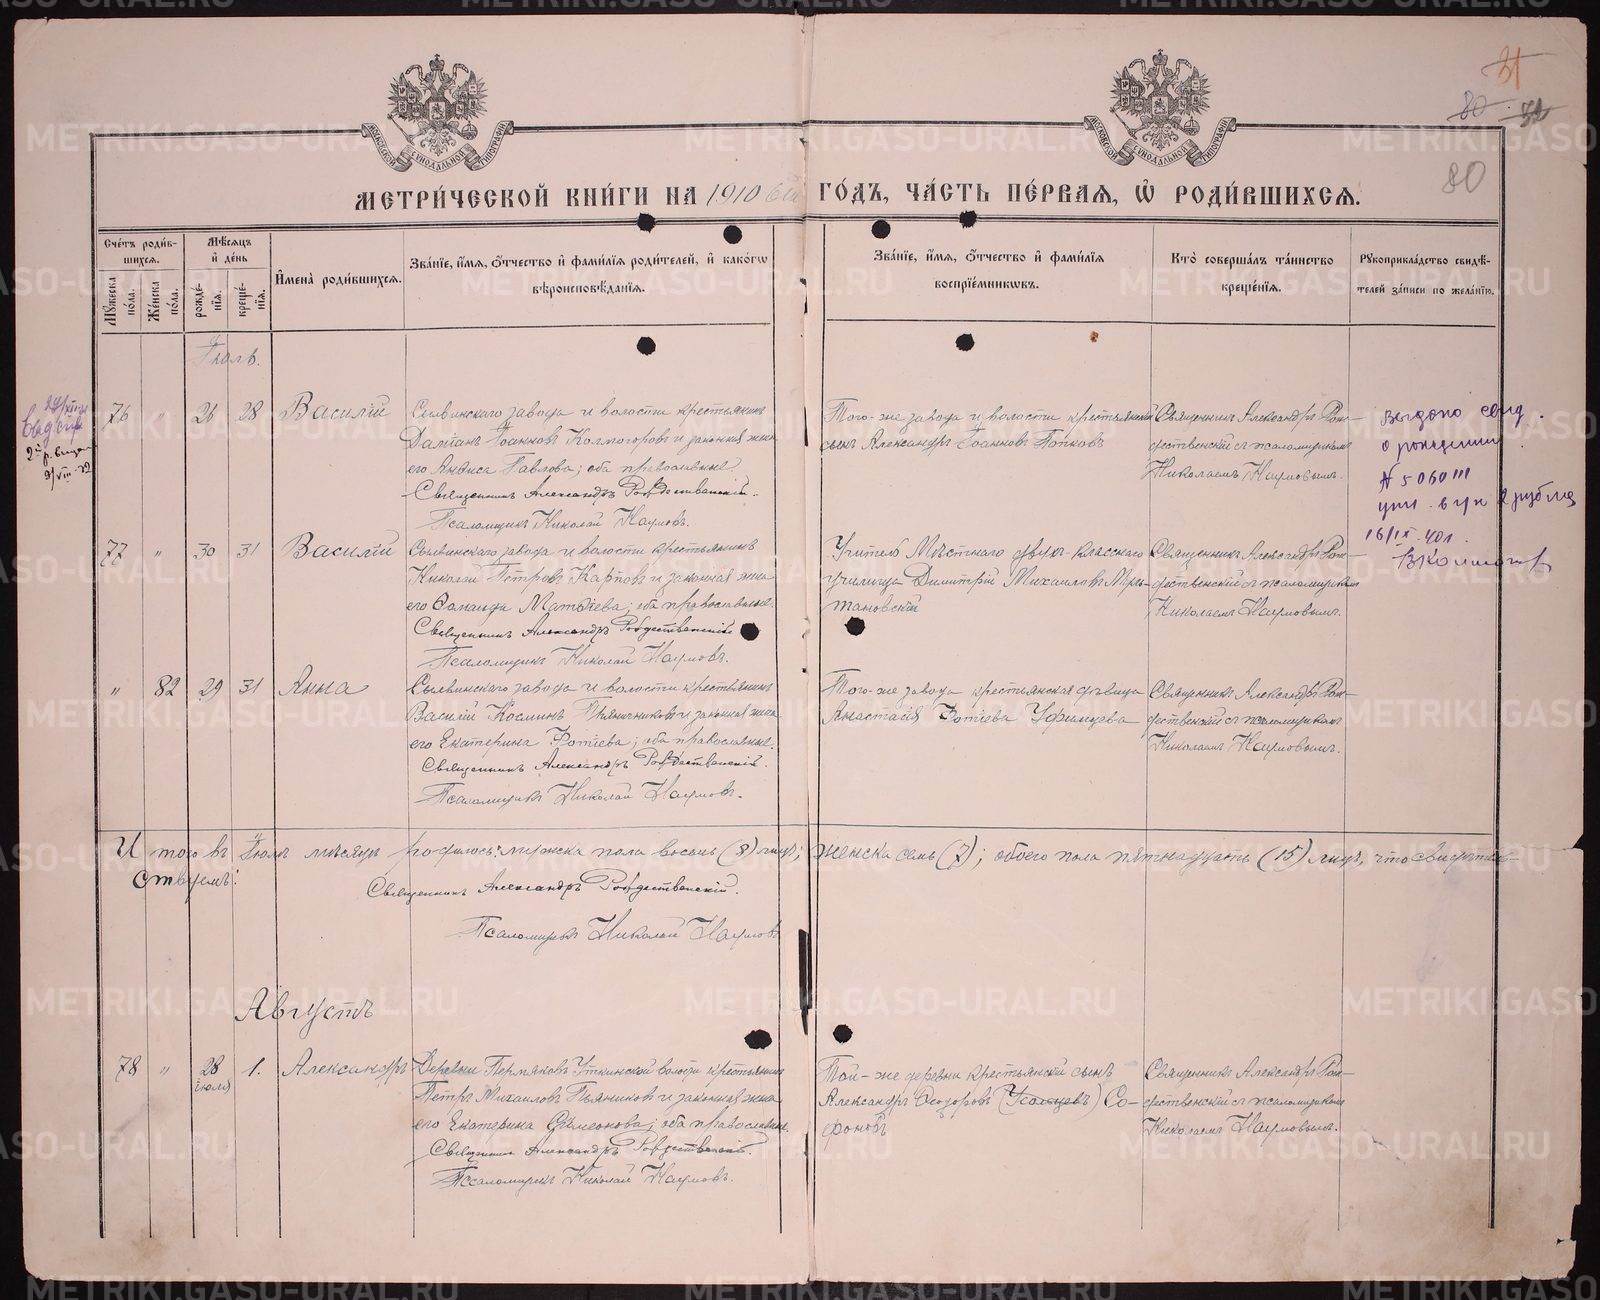 31
80
80
МОСКОВСКОЙ СѴНОДАЛЬНОЙ ТИПОГРАФІИ
МОСКОВСКОЙ СѴНОДАЛЬНОЙ ТИПОГРАФІИ
МЕТРИ́ЧЕСКОЙ КНИ́ГИ НА 1910 ГО́ДЪ, ЧА́СТЬ ПЕ́РВАЯ, Ѡ҆ РОДИ́ВШИХСЯ.
Сче́тъ роди́в-
шихся.
Мѣ́сяцъ
и҆ де́нь
Мꙋ́жеска по́ла.
Же́нска по́ла.
рожде́-
нїя.
креще́-
нїя.
И҆мена̀ роди́вшихся.
Зва́нїе, и҆́мя, ѻ҆́тчество и҆ фами́лїя роди́телей, и҆ како́гѡ
вѣроисповѣ́данїя.
Зва́нїе, и҆́мя, ѻ҆́тчество и҆ фами́лїя
воспрїе́мникѡвъ.
Кто̀ соверша́лъ та́инство
креще́нїя.
Рꙋкоприкла́дство свидѣ́-
телей за́писи по жела́нїю.
Іюль.
76 " 26 28 Василій
Сылвинскаго завода и волости крестьянинъ
Даміанъ Іоанновъ Колмогоровъ и законная жена
его Анѳиса Павлова; оба православные.
Священникъ Александръ Рождественскій.
Псаломщикъ Николай Наумовъ.
Того-же завода и волости крестьянскій
сынъ Александръ Іоанновъ Попковъ
Священникъ Александръ Рож-
дественскій съ псаломщикомъ
Николаемъ Наумовымъ.
выдано свид.
о рождении
N 5060
2 рубля
16/IX-40г.
77 " 30 31 Василій
Сылвинскаго завода и волости крестьянинъ
Николай Петровъ Карповъ и законная жена
его Матѳіева; оба православные.
Священникъ Александръ Рождественскій
Псаломщикъ Николай Наумовъ.
Учитель Мѣстнаго двухъ-класснаго
училища Димитрій Михаиловъ
Священникъ Александръ Рож-
дественскій съ псаломщикомъ
Николаемъ Наумовымъ.
" 82 29 31 Анна
Сылвинскаго завода и волости крестьянинъ
Василій Косминъ Пьянниковъ и законная жена
его Екатерина Фотіева; оба православные.
Священникъ Александръ Рождественскій.
Псаломщикъ Николай Наумовъ.
Того-же завода крестьянская дѣвица
Анастасія Фотіева Уфимцева
Священникъ Александръ Рож-
дественскій съ псаломщикомъ
Николаемъ Наумовымъ.
Итого въ Іюлѣ мѣсяцѣ родилось: мужеска пола восемь (8) лицъ; женска семь (7); обоего пола пятнадцать (15) лицъ, что свидѣтель-
ствуемъ:
Священникъ Александръ Рождественскій.
Псаломщикъ Николай Наумовъ
Августъ
78 " 28 1. Александръ
іюля
Деревни Пермяковъ Уткинской волости крестьянинъ
Петръ Михаиловъ Пьянниковъ и законная жена
его Екатерина Симеонова; оба православные.
Священникъ Александръ Рождественскій.
Псаломщикъ Николай Наумовъ.
Той-же деревни крестьянскій сынъ
Александръ Ѳеодоровъ (Усольцевъ) Со-
фоновъ
Священникъ Александръ Рож-
дественскій съ псаломщикомъ
Николаемъ Наумовымъ.
METRIKI.GASO-URAL.RU